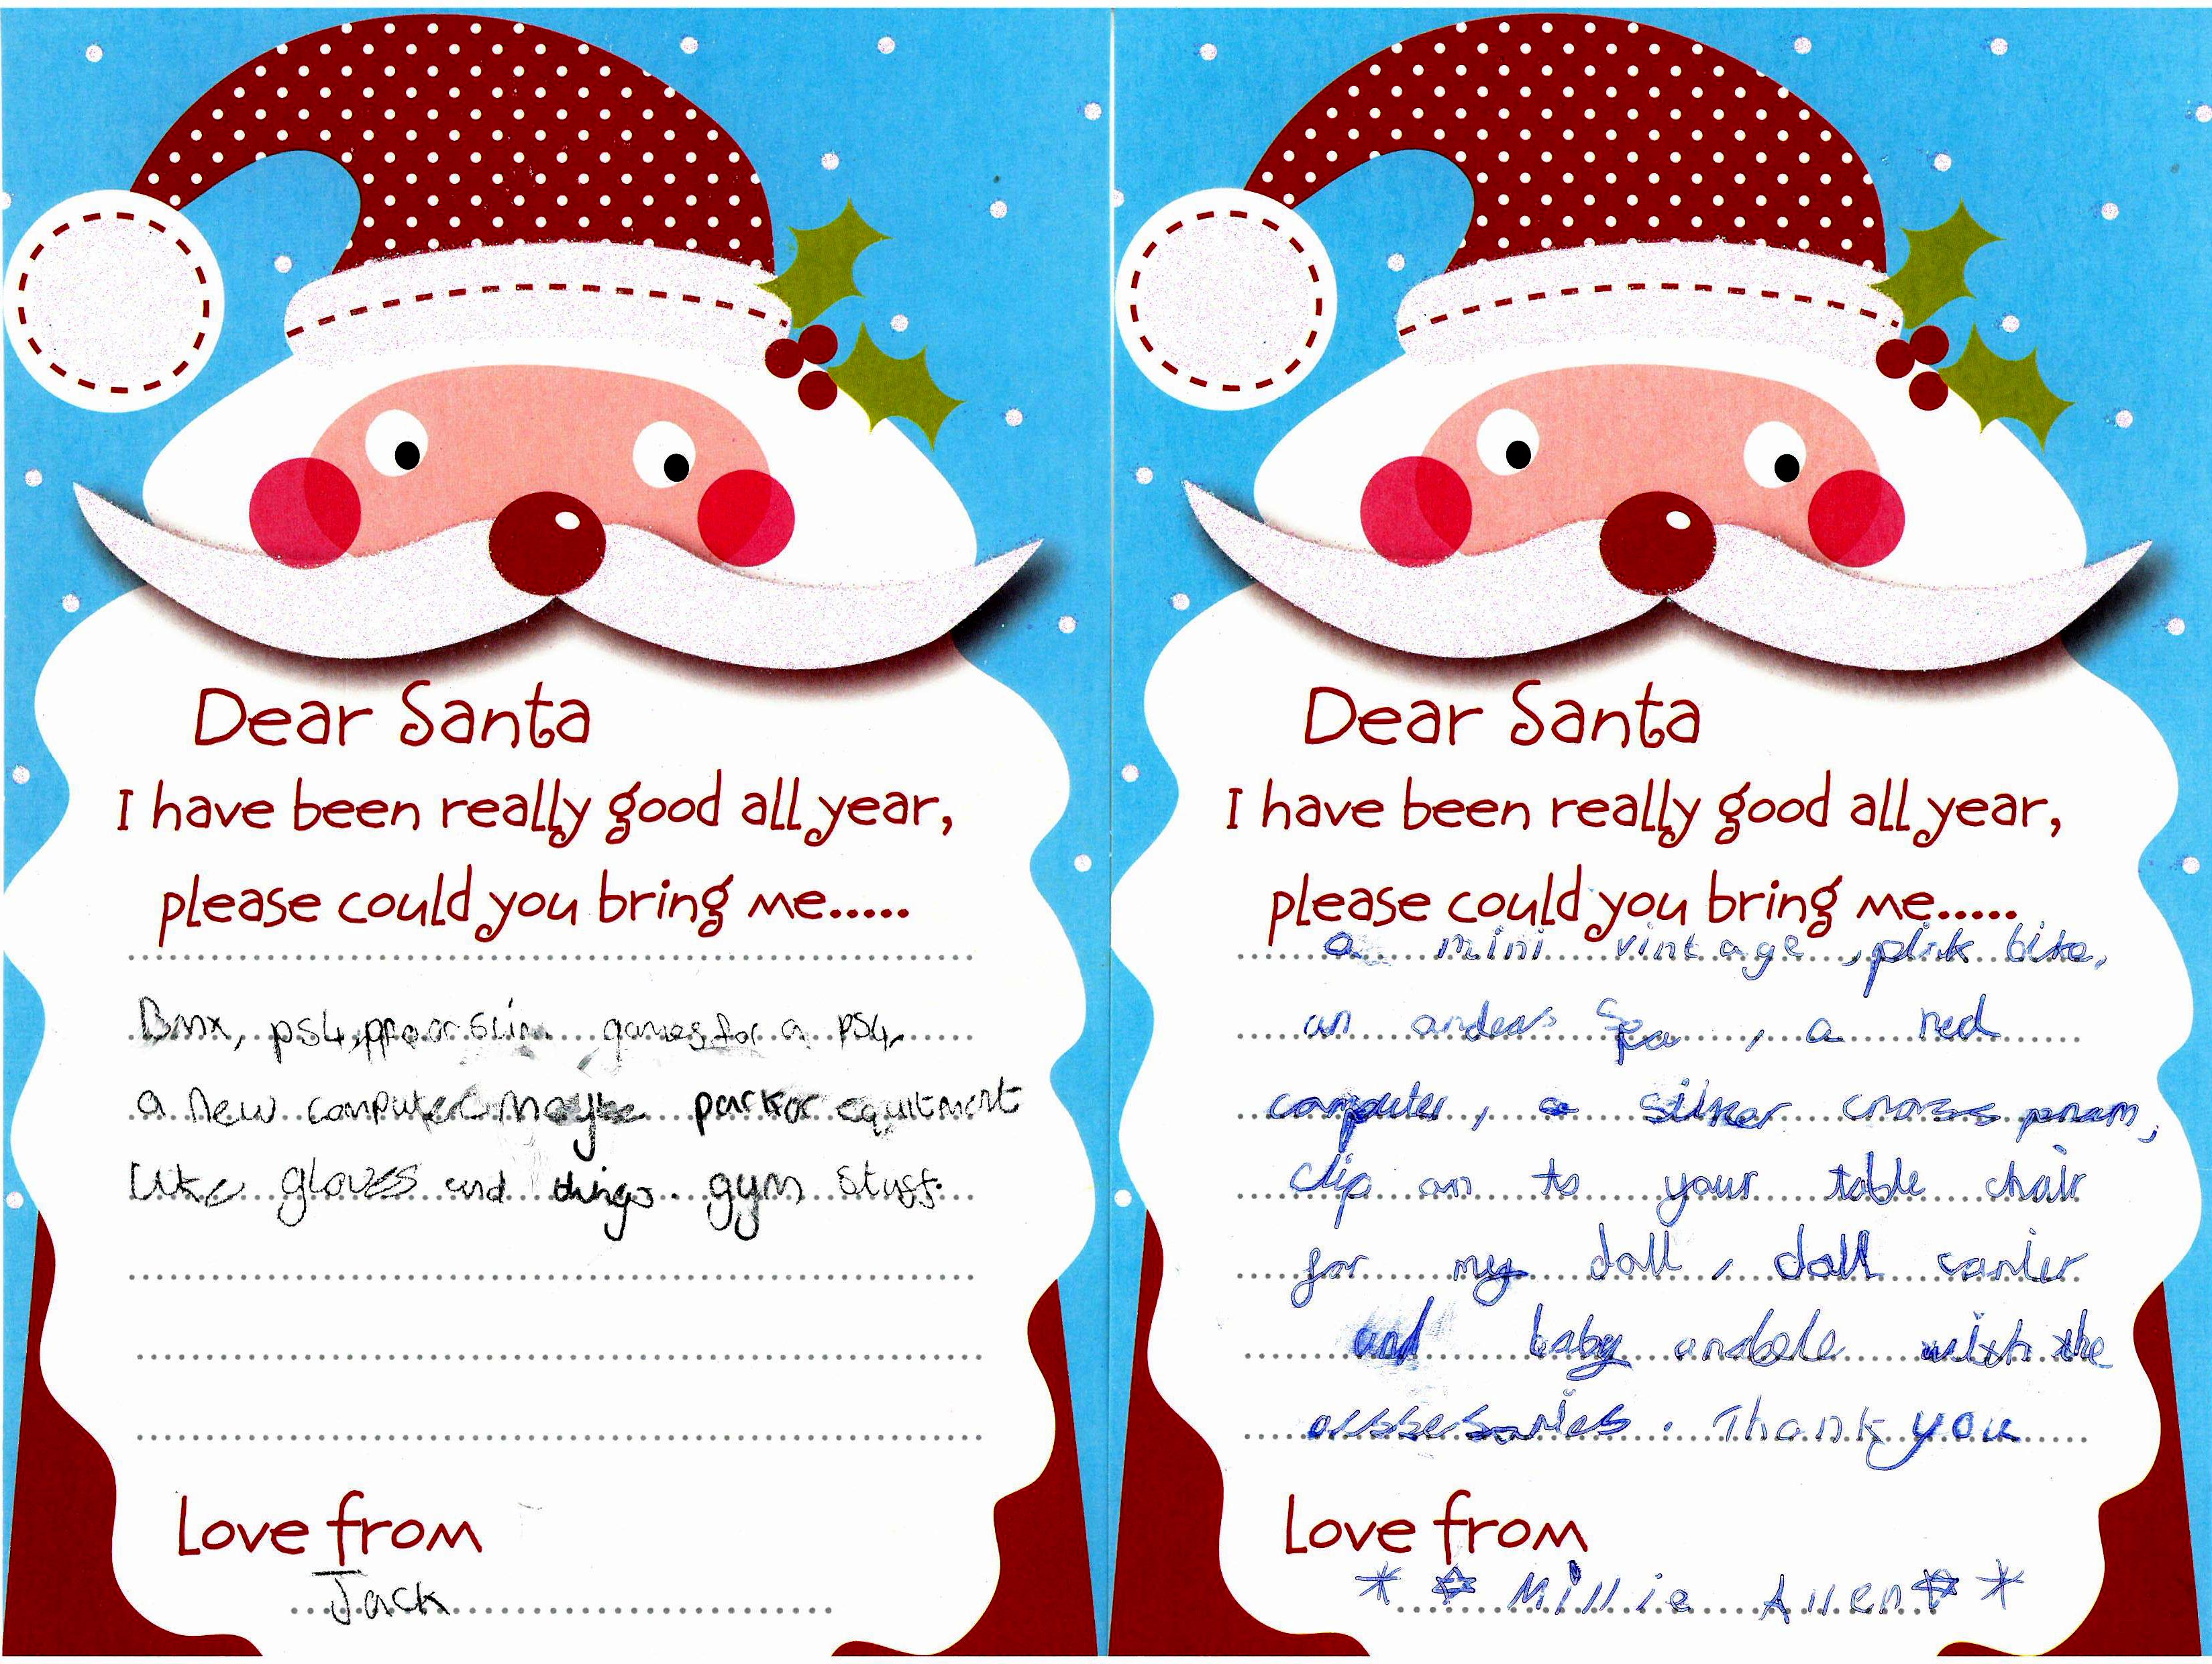 Dear Santa
I have been really good all year,
please could you bring me.....
Bmx, ps4, pro or slim. games for a ps4,
a new computer maybe parkor equitment
like gloves and things. gym stuff.
Love from
Jack
Dear Santa
I have been really good all year,
please could you bring me.....
a mini vintage, pink bike,
an Spa, a red
computer, a silker cross pram,
clip on to your table chair
for my doll, doll carrier
and baby anabele with the
Thank you
Love from
Millie Allen